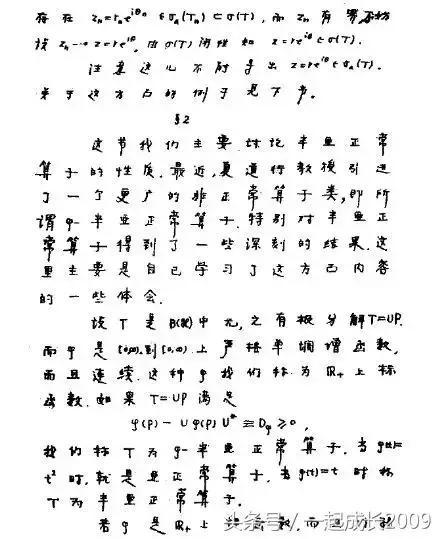 存在 zₙ=rₙe^{iθₙ}∈σₐ(Tₙ)⊂σ(T), 而 zₙ 有界, 不妨
设 zₙ→z=re^{iθ}, 由 σ(T) 闭性知 z=re^{iθ}∈σ(T).
注意这儿不能导出 z=re^{iθ}∈σₐ(T).
关于这方面的例子见下节。
§2
这节我们主要讨论半亚正常
算子的性质. 最近, 夏道行教授引进
了一个更广的非正常算子类, 即所
谓φ-半亚正常算子. 特别对半亚正
常算子得到了一些深刻的结果. 这
里主要是自己学习了这方面内容
的一些体会.
设 T 是 B(H) 中元, 它有极分解 T=UP.
而 φ 是 [0,∞) 到 [0,∞) 上严格单调增函数,
而且连续. 这种 φ 我们称为 R₊ 上标
函数. 如果 T=UP 满足
φ(P) - Uφ(P)U* ≡ D_φ ≥ 0,
我们称 T 为 φ-半亚正常算子. 当 φ(t)=
t² 时, 就是亚正常算子, 当 φ(t)=t 时称
T 为半亚正常算子.
若 φ 是 R₊ 上标函数, 而且
头条号 / 一起成长2009